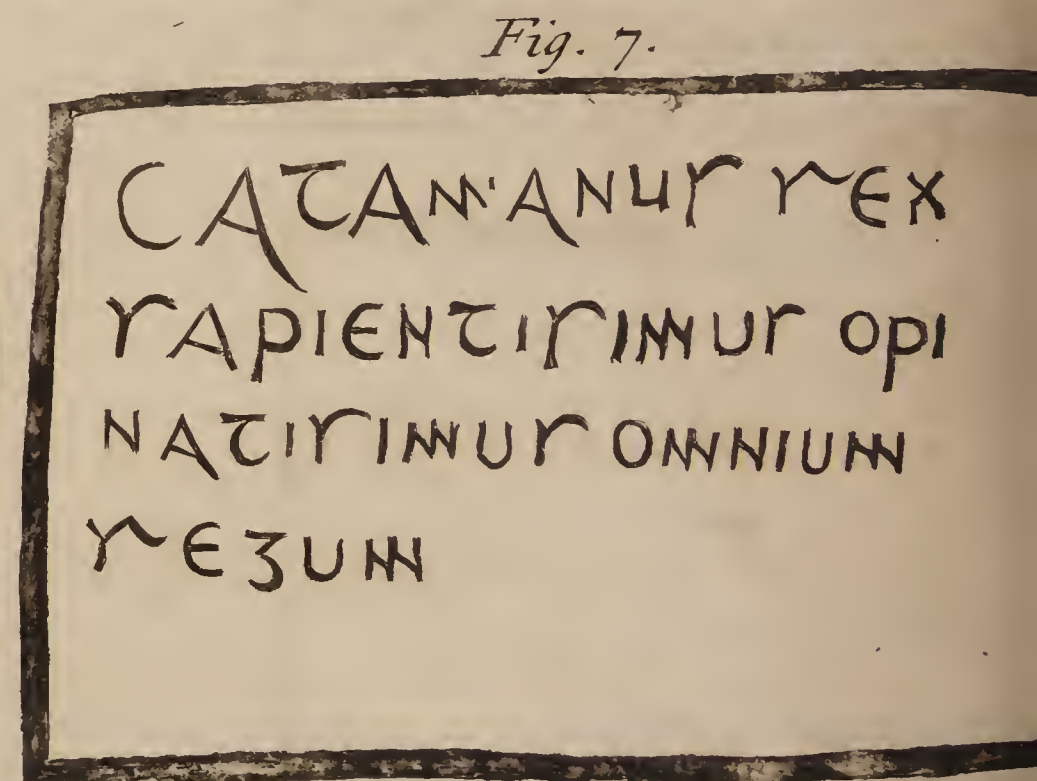 Fig. 7.
CATAMANUS REX
SAPIENTISIMUS OPI
NATISIMUS OMNIUM
REGUM